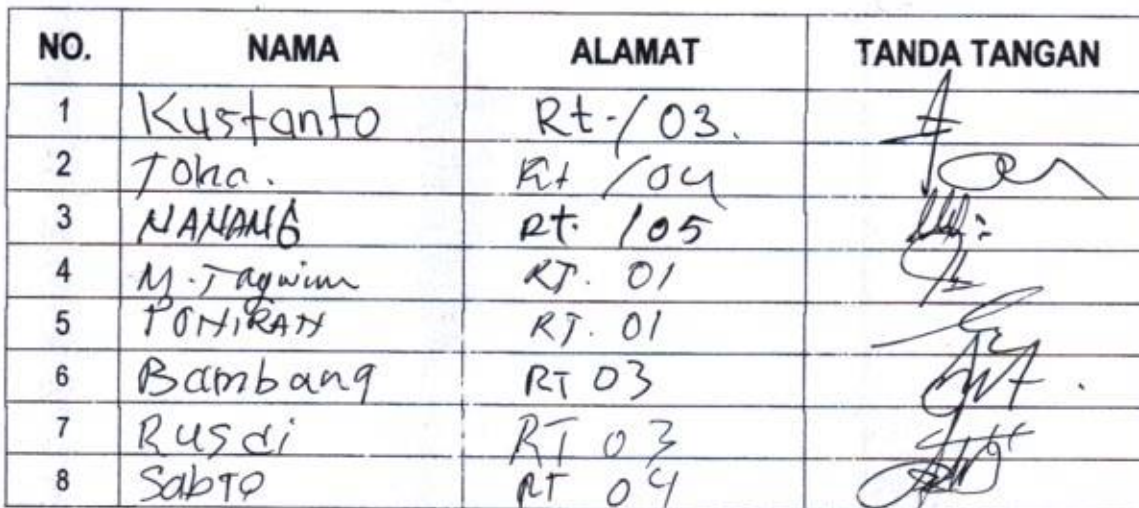 NO. NAMA ALAMAT TANDA TANGAN
1 Kustanto Rt-/03.
2 Toha. Rt /04
3 NANANG Rt. /05
4 M. Taqwim RT. 01
5 PONIRAN RT. 01
6 Bambang RT 03
7 Rusdi RT 03
8 Sabto RT 04